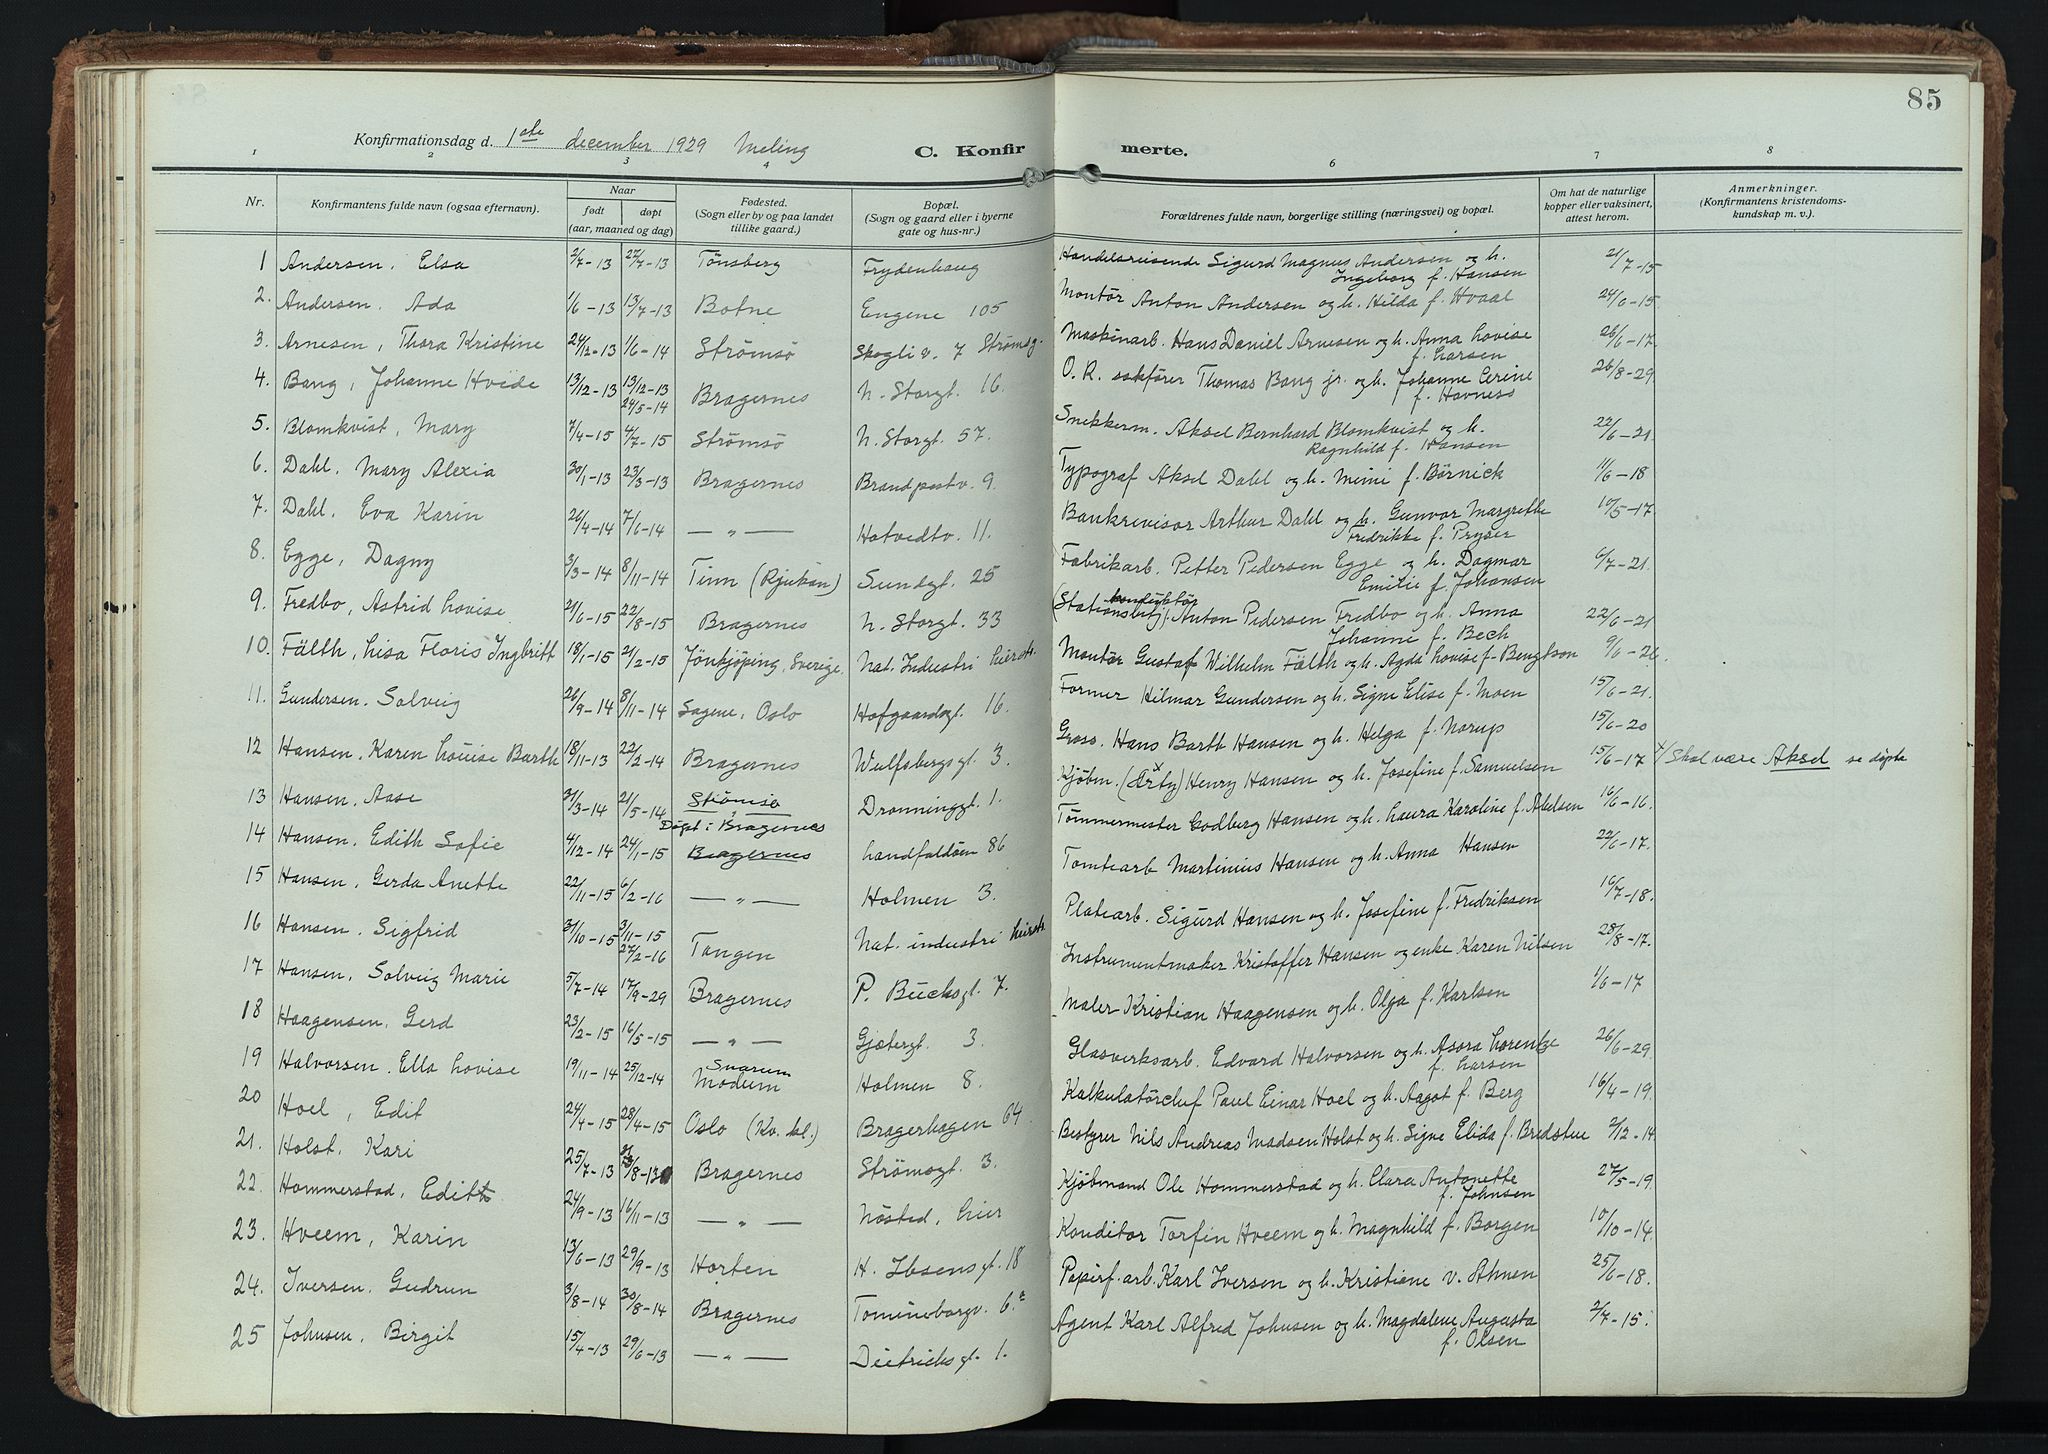 85
Konfirmationsdag d. 1ste december 1929 Meling
C. Konfirmerte.
1 2 3 4 6 7 8
Nr. Konfirmantens fulde navn (ogsaa efternavn). Naar født døpt (aar, maaned og dag) Fødested. (Sogn eller by og paa landet tillike gaard.) Bopæl. (Sogn og gaard eller i byerne gate og hus-nr.) Forældrenes fulde navn, borgerlige stilling (næringsvei) og bopæl. Om hat de naturlige kopper eller vaksinert, attest herom. Anmerkninger. (Konfirmantens kristendomskundskap m. v.)
1 Andersen, Elsa 2/7-13 27/7-13 Tönsberg Frydenhaug Handelsreisende Sigurd Magnus Andersen og h. Ingeborg f. Hansen 21/7-15
2. Andersen, Ada 1/6-13 13/7-13 Botne Engene 105 Montör Anton Andersen og h. Hilda f. Hvaal 24/6-15
3. Arnesen, Thora Kristine 24/12-13 1/6-14 Strömsö Skogli v. 7 Strömsg. Maskinarb. Hans Daniel Arnesen og h. Anna Lovise f. Larsen 26/6-17
4. Bang, Johanne Hvide 13/12-13 13/12-13 24/5-14 Bragernes N. Storgt. 16. O. R. sakförer Thomas Bang jr. og h. Johanne Cerine f. Havness 26/8-29
5. Blomkvist, Mary 7/4-15 4/7-15 Strömsö N. Storgt. 57. Snekkerm. Aksel Bernhard Blomkvist og h. Ragnhild f. Hansen 22/6-21
6. Dahl, Mary Alexia 30/1-13 23/3-13 Bragernes Brandpostv. 9. Typograf Aksel Dahl og h. Mimi f. Börnick 11/6-18
7. Dahl, Eva Karin 26/4-14 7/6-14 — „ — Hotvedtv. 11. Bankrevisor Arthur Dahl og h. Gunvor Margrethe Fredrikke f. Pryser 10/5-17
8. Egge, Dagny 3/3-14 8/11-14 Tinn (Rjukan) Sundgt. 25 Fabrikarb. Petter Pedersen Egge og h. Dagmar Emilie f. Johansen 6/7-21
9. Fredbo, Astrid Lovise 21/6-15 22/8-15 Bragernes N. Storgt. 33 (Stationsbetj.) konduktör Anton Pedersen Fredbo og h. Anna Johanne f. Bech 22/6-21
10. Fälth, Lisa Floris Ingbritt 18/1-15 21/2-15 Jönkjöping, Sverige Nat. Industri hierst. Montör Gustaf Wilhelm Fälth og h. Agda Lovise f. Bengtson 9/6-26
11. Gundersen, Solveig 26/9-14 8/11-14 Sagene, Oslo Hofgaardsgt. 16. Former Hilmar Gundersen og h. Signe Elise f. Moen 15/6-21
12 Hansen, Karen Louise Barth 18/11-13 22/2-14 Bragernes Wulfsbergsgt. 3. Gross. Hans Barth Hansen og h. Helga f. Narup 15/6-20
13 Hansen, Aase 31/3-14 21/5-14 Strömsö Döpt i Bragernes Dronninggt. 1. Kjöbm. (Arty) x Henry Hansen og h. Josefine f. Samuelsen 15/6-17 x/ Skal være Aksel se döpte
14 Hansen, Edith Sofie 4/12-14 24/1-15 Bragernes Landfaldöen 86 Tömmermester Godberg Hansen og h. Laura Karoline f. Abelsen 16/6-16
15 Hansen, Gerda Anette 22/11-15 6/2-16 — „ — Holmen 3. Tomtearb Martinius Hansen og h. Anna Hansen 22/6-17.
16 Hansen, Sigfrid 31/10-15 3/11-15 27/2-16 Tangen Nat. industri hierst. Platearb. Sigurd Hansen og h. Josefine f. Fredriksen 16/7-18.
17 Hansen, Solveig Marie 5/7-14 17/9-29 Bragernes P. Buchsgt. 7. Instrumentmaker Kristoffer Hansen og enke Karen Nilsen 28/8-17.
18 Haagensen, Gerd 23/2-15 16/5-15 — „ — Gjætergt. 3. Maler Kristian Haagensen og h. Olga f. Karlsen 1/6-17
19 Halvorsen, Ella Lovise 19/11-14 25/12-14 Snarum Modum Holmen 8. Glasverksarb. Edvard Halvorsen og h. Asora Lorentze f. Larsen 26/6-29
20 Hoel, Edit 24/4-15 28/4-15 Oslo (Kv. kl.) Bragerhagen 64. Kalkulatörchef Paul Einar Hoel og h. Aagot f. Berg 16/4-19
21. Holst, Kari 25/7-13 31/8-13 Bragernes Strömsgt. 3. Bestyrer Nils Andreas Madsen Holst og h. Signe Elida f. Bredstue 2/12-14
22. Hommerstad, Edith 24/9-13 16/11-13 — „ — Nösted, hier Kjöbmand Ole Hommerstad og h. Clara Antonette f. Johnsen 27/5-19
23. Hveem, Karin 13/6-13 29/9-13 Horten H. Ibsensgt. 18 Konditor Torfin Hveem og h. Magnhild f. Borgen 10/10-14.
24. Iversen, Gudrun 3/8-14 30/8-14 Bragernes Tomineborgv. 6.a Papirf. arb. Karl Iversen og h. Kristiane v. Ahnen 25/6-18.
25 Johnsen, Birgit 15/4-13 29/6-13 — „ — Dietrichsgt. 1. Agent Karl Alfred Johnsen og h. Magdalene Augusta f. Olsen 2/7-15.